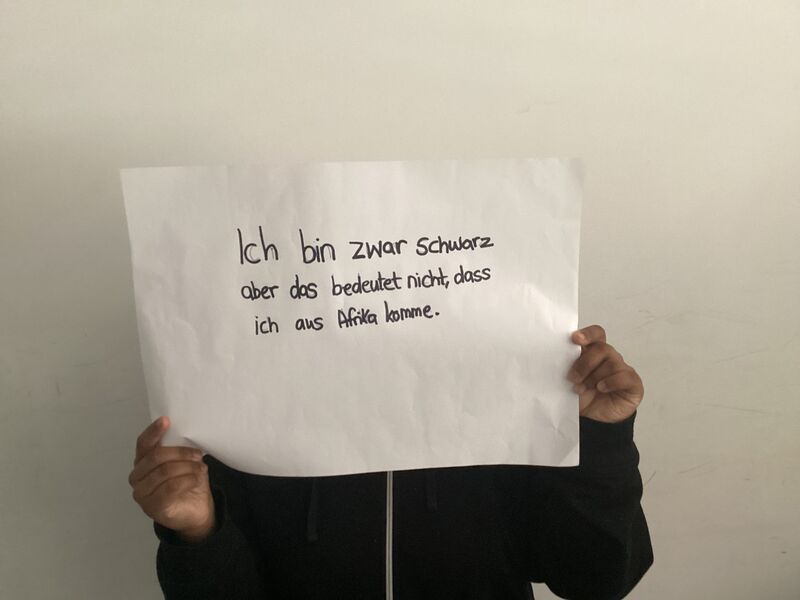 Ich bin zwar schwarz
aber das bedeutet nicht, dass
ich aus Afrika komme.